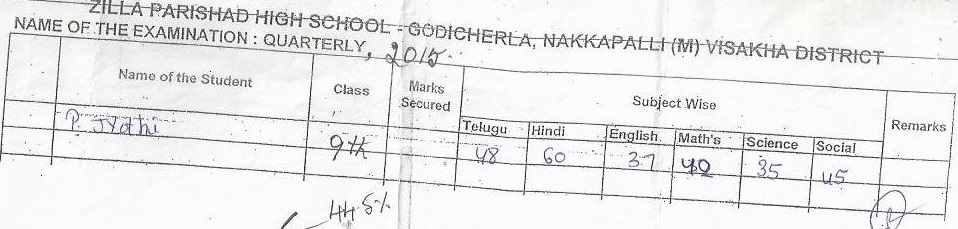 ZILLA PARISHAD HIGH SCHOOL - GODICHERLA, NAKKAPALLI (M) VISAKHA DISTRICT
NAME OF THE EXAMINATION : QUARTERLY, 2015.
Name of the Student Class Marks Secured Subject Wise Remarks
Telugu Hindi English. Math's Science Social
P. Jyothi 9th 48 60 37 42 35 45
44.5%